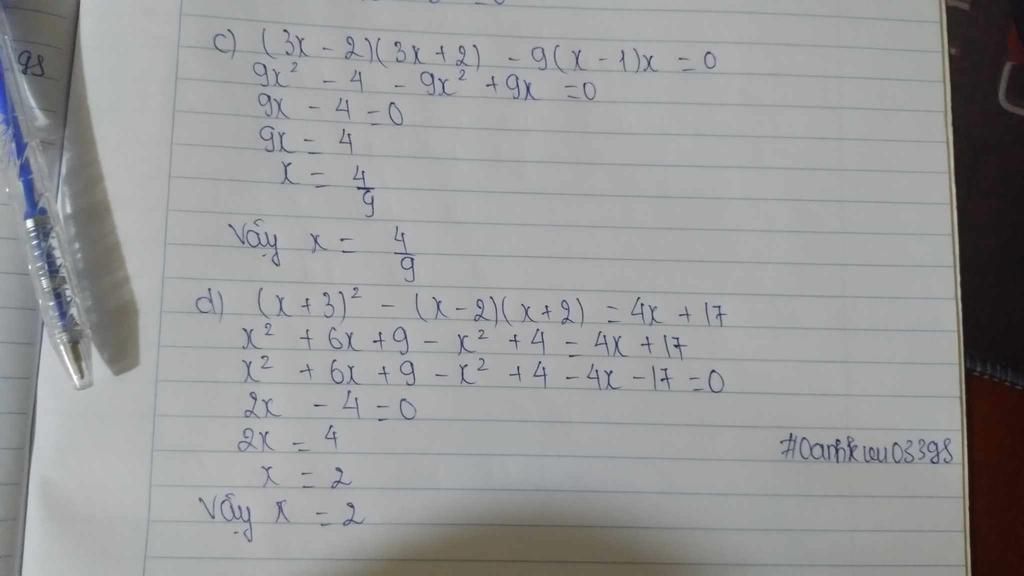 c) (3x - 2)(3x + 2) - 9(x - 1)x = 0
9x² - 4 - 9x² + 9x = 0
9x - 4 = 0
9x = 4
x = 4/9
Vậy x = 4/9
d) (x + 3)² - (x - 2)(x + 2) = 4x + 17
x² + 6x + 9 - x² + 4 = 4x + 17
x² + 6x + 9 - x² + 4 - 4x - 17 = 0
2x - 4 = 0
2x = 4
x = 2
Vậy x = 2